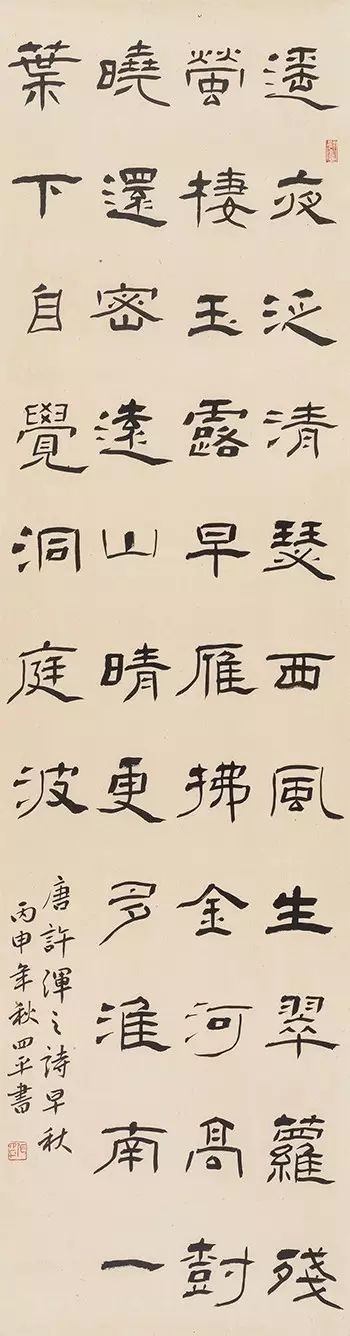 遙夜泛清瑟西風生翠蘿殘
螢棲玉露早雁拂金河高樹
曉還密遠山晴更多淮南一
葉下自覺洞庭波
唐許渾之詩早秋
丙申年秋四平書